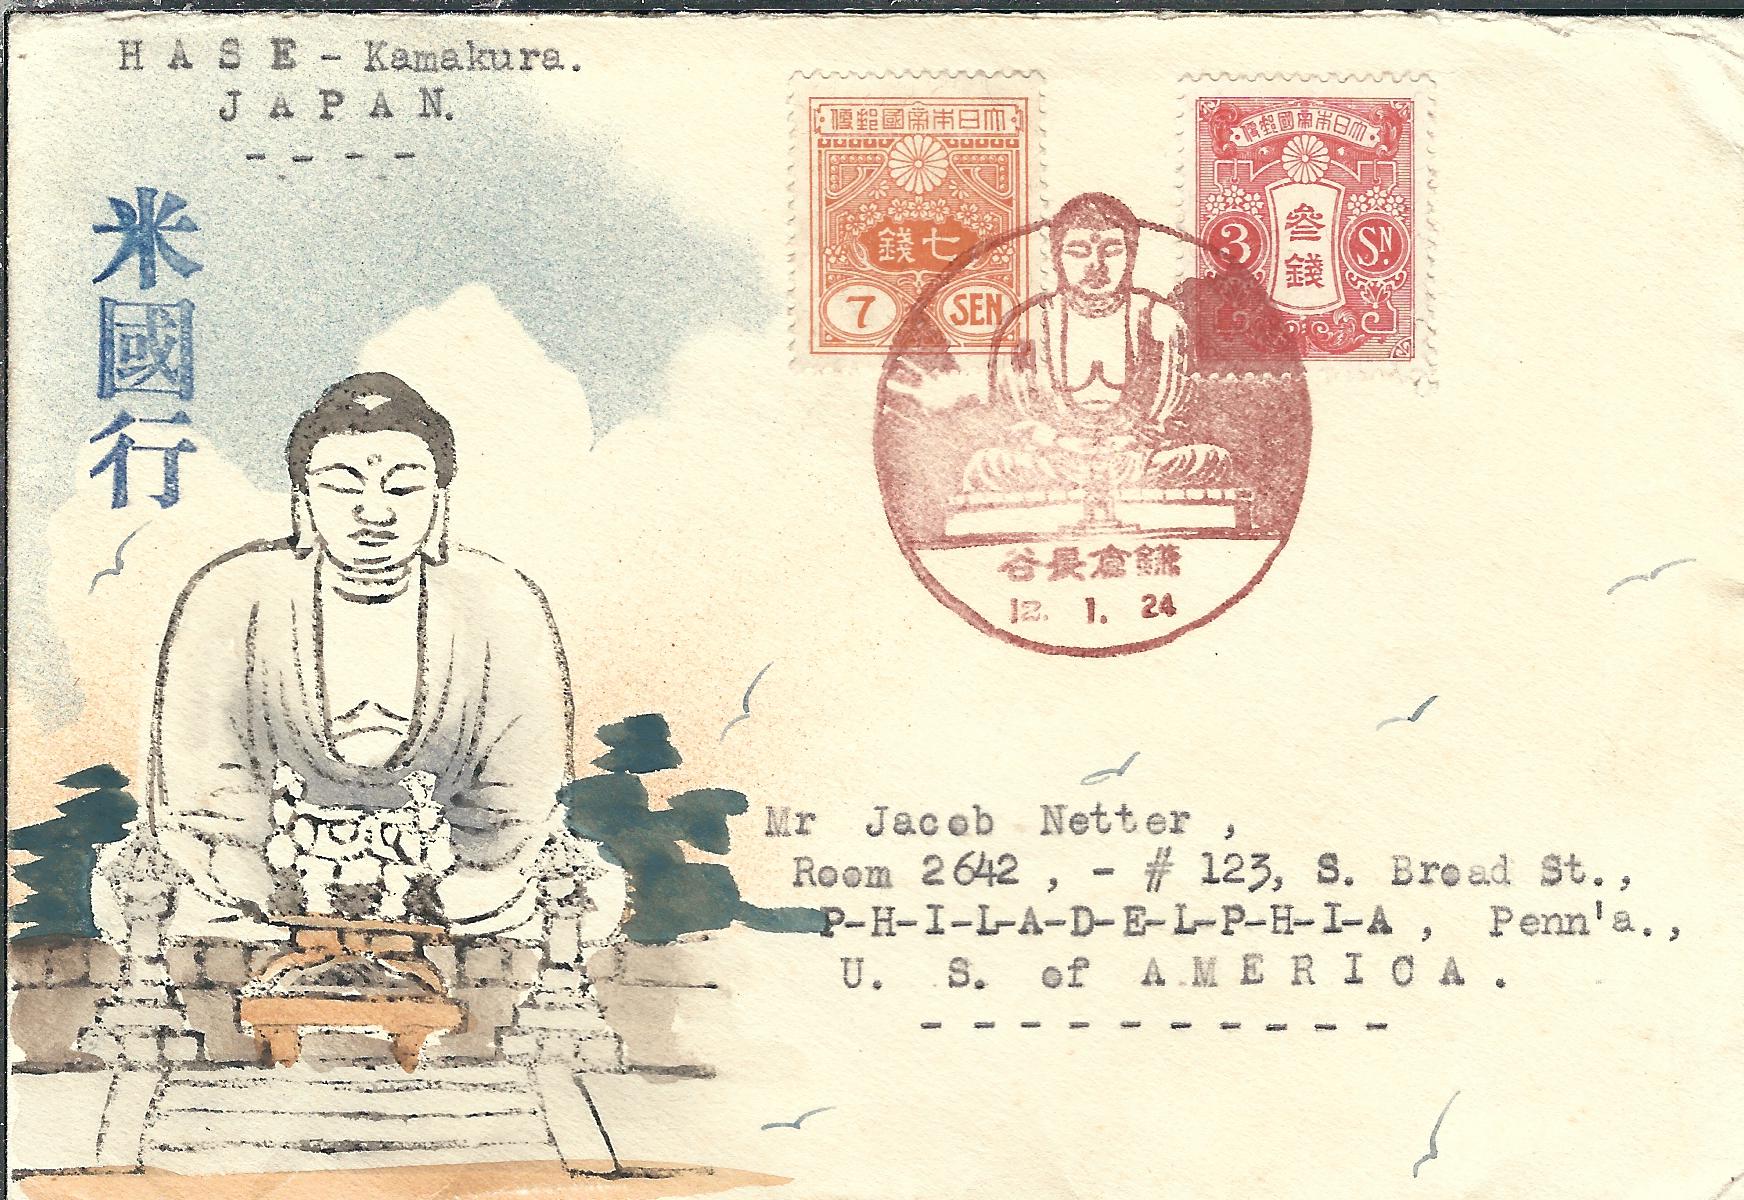 H A S E - Kamakura.
J A P A N.
- - - -
米國行
大日本帝國郵便
七錢
7 SEN
大日本帝國郵便
參錢
3 SN
鎌倉長谷
12. 1. 24
Mr Jacob Netter ,
Room 2642 , - # 123, S. Broad St.,
P-H-I-L-A-D-E-L-P-H-I-A , Penn'a.,
U. S. of A M E R I C A .
- - - - - - - - - - -